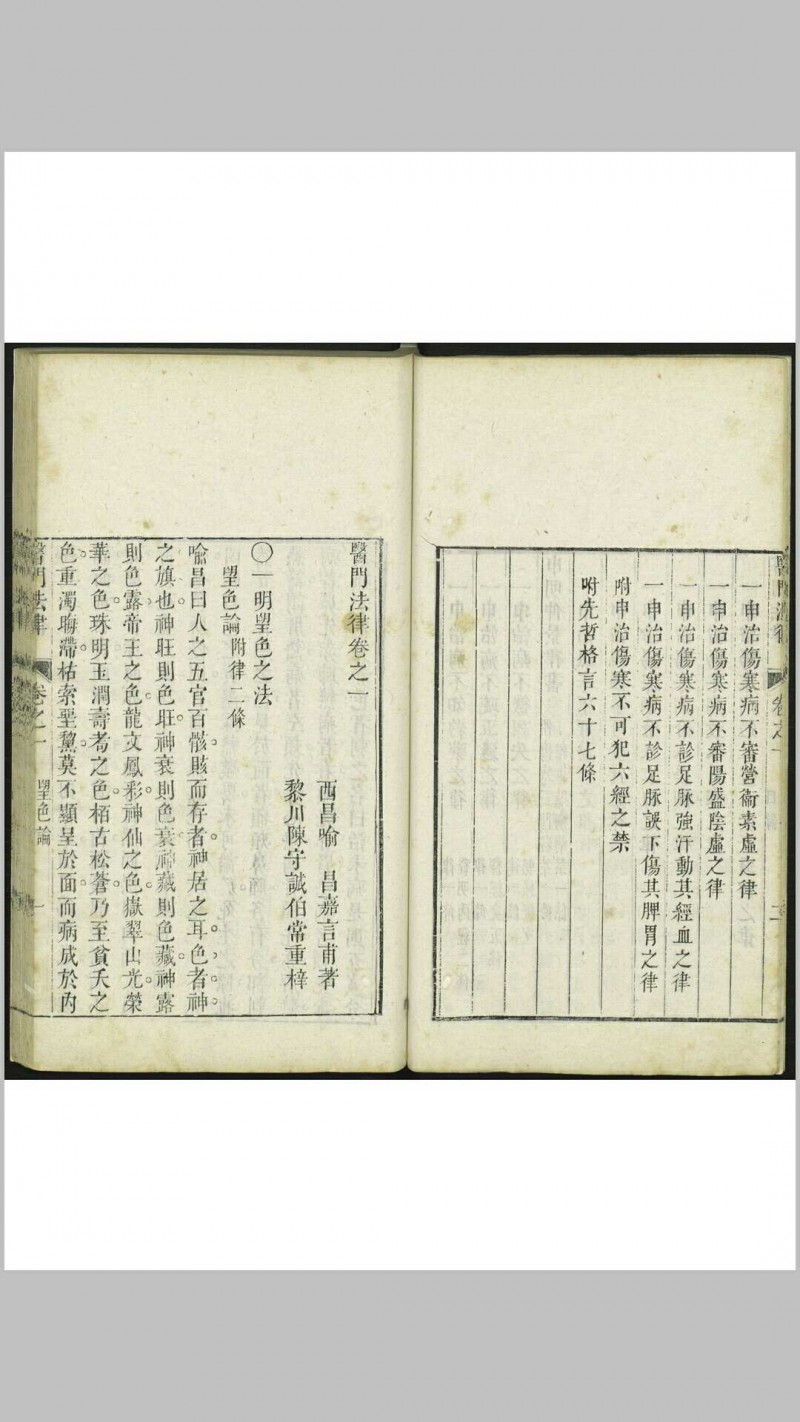 醫門法律 卷之一 二
一申治傷寒病不審營衞素虛之律
一申治傷寒病不審陽盛陰虛之律
一申治傷寒病不診足脉強汗動其經血之律
一申治傷寒病不診足脉誤下傷其脾胃之律
附申治傷寒不可犯六經之禁
附先哲格言六十七條
醫門法律卷之一
西昌喻 昌嘉言甫著
黎川陳守誠伯常重梓
〇一明望色之法
望色論附律二條
喻昌曰人之五官百骸賅而存者神居之耳色者神
之旗也神旺則色旺神衰則色衰神藏則色藏神露
則色露帝王之色龍文鳳彩神仙之色嶽翠山光榮
華之色珠明玉潤壽耇之色栢古松蒼乃至貧夭之
色重濁晦滯枯索堊黧莫不顯呈於面而病成於內
醫門法律 卷之一 望色論 一